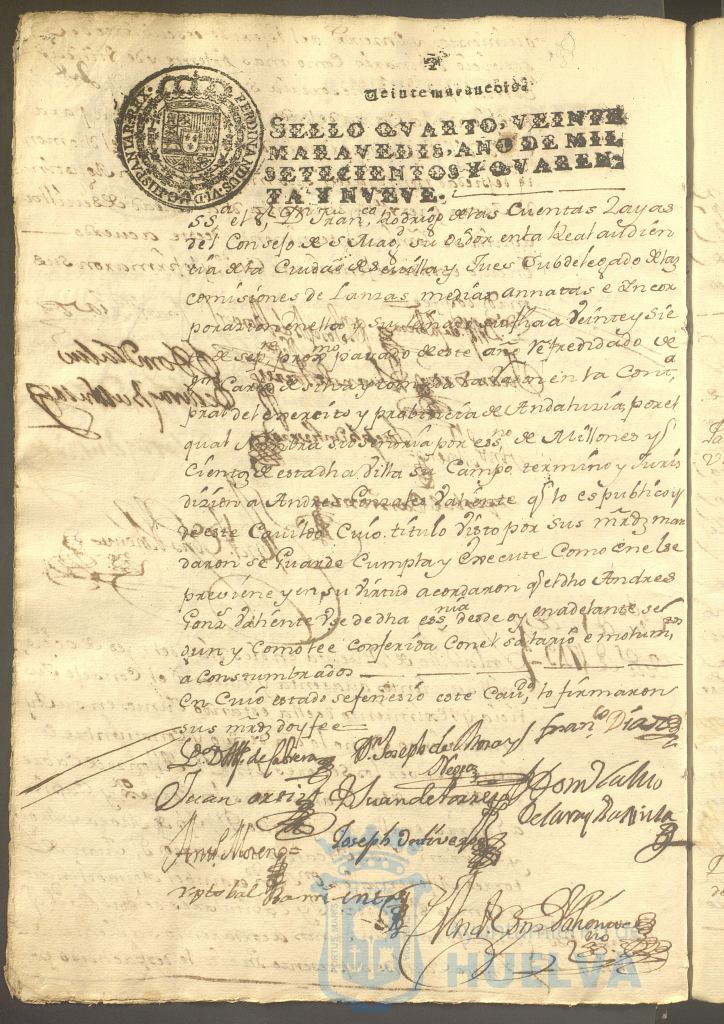 Veinte maravedis
SELLO QVARTO, VEINTE
MARAVEDIS, AÑO DE MIL
SETECIENTOS Y QVAREN-
TA Y NVEVE.
FERDINANDUS VI D G HISPANIAR REX
el Sr Dn Fran co Rodrigo de las Cuentas Zayas
del Consejo de S Magd su oidor en la Real audien
cia de la Ciudad de sevilla y Jues Subdelegado de las
comisiones de Lanzas medias annatas e Yncor
porazion veinte y sie
te de sepre proxmo pasado de este año Refredidado de
Dn Carlos de Silva razon en la Cont a
pral del exercito y probincia de Andaluzia, por el
qual Nombra su señoria por essno de Millones y
Cientos de esta dha Villa su Campo termino y Juris
dizion a Andres Gonzales Valiente qe lo es publico y
de este Cavildo Cuio titulo Visto por sus mrdz man
daron se Guarde Cumpla y Execute Como en el se
previene y en su Virtud acordaron qe el dho Andres
Gonz Valiente Vse de dha essnia desde oy en adelante, se
gun y Como le e conferida Con el salario e molumtos
a Constumbrados
En Cuio estado se fenesio este Cavdo, lo firmaron
sus mrdz doy fee
Dn Joseph de Franco Diaz
Negra
Juan ortiz Dn Juan de Torres Dom
Anto Moreno Joseph de Riveros
xptobal Ramirez
And. Gonz Valiente
HUELVA